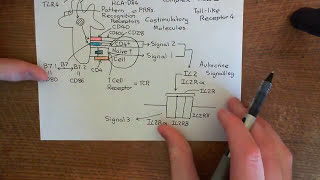 TLR4
HLA-DR4
Complex
Pattern = PRRs
Recognition
Receptors
Costimulatory
Molecules
Toll-like
Receptor 4
CD40
CD40 - CD28
CD4+
Naive T
Cell
Signal 2
Signal 1
B7 1
B7 2
CD80
CD86
CD4
T Cell
Receptor = TCR
IL2
Autocrine
Signalling
IL2Rα
IL2R
Signal 3
IL2Rα
IL2Rβ
IL2Rγ